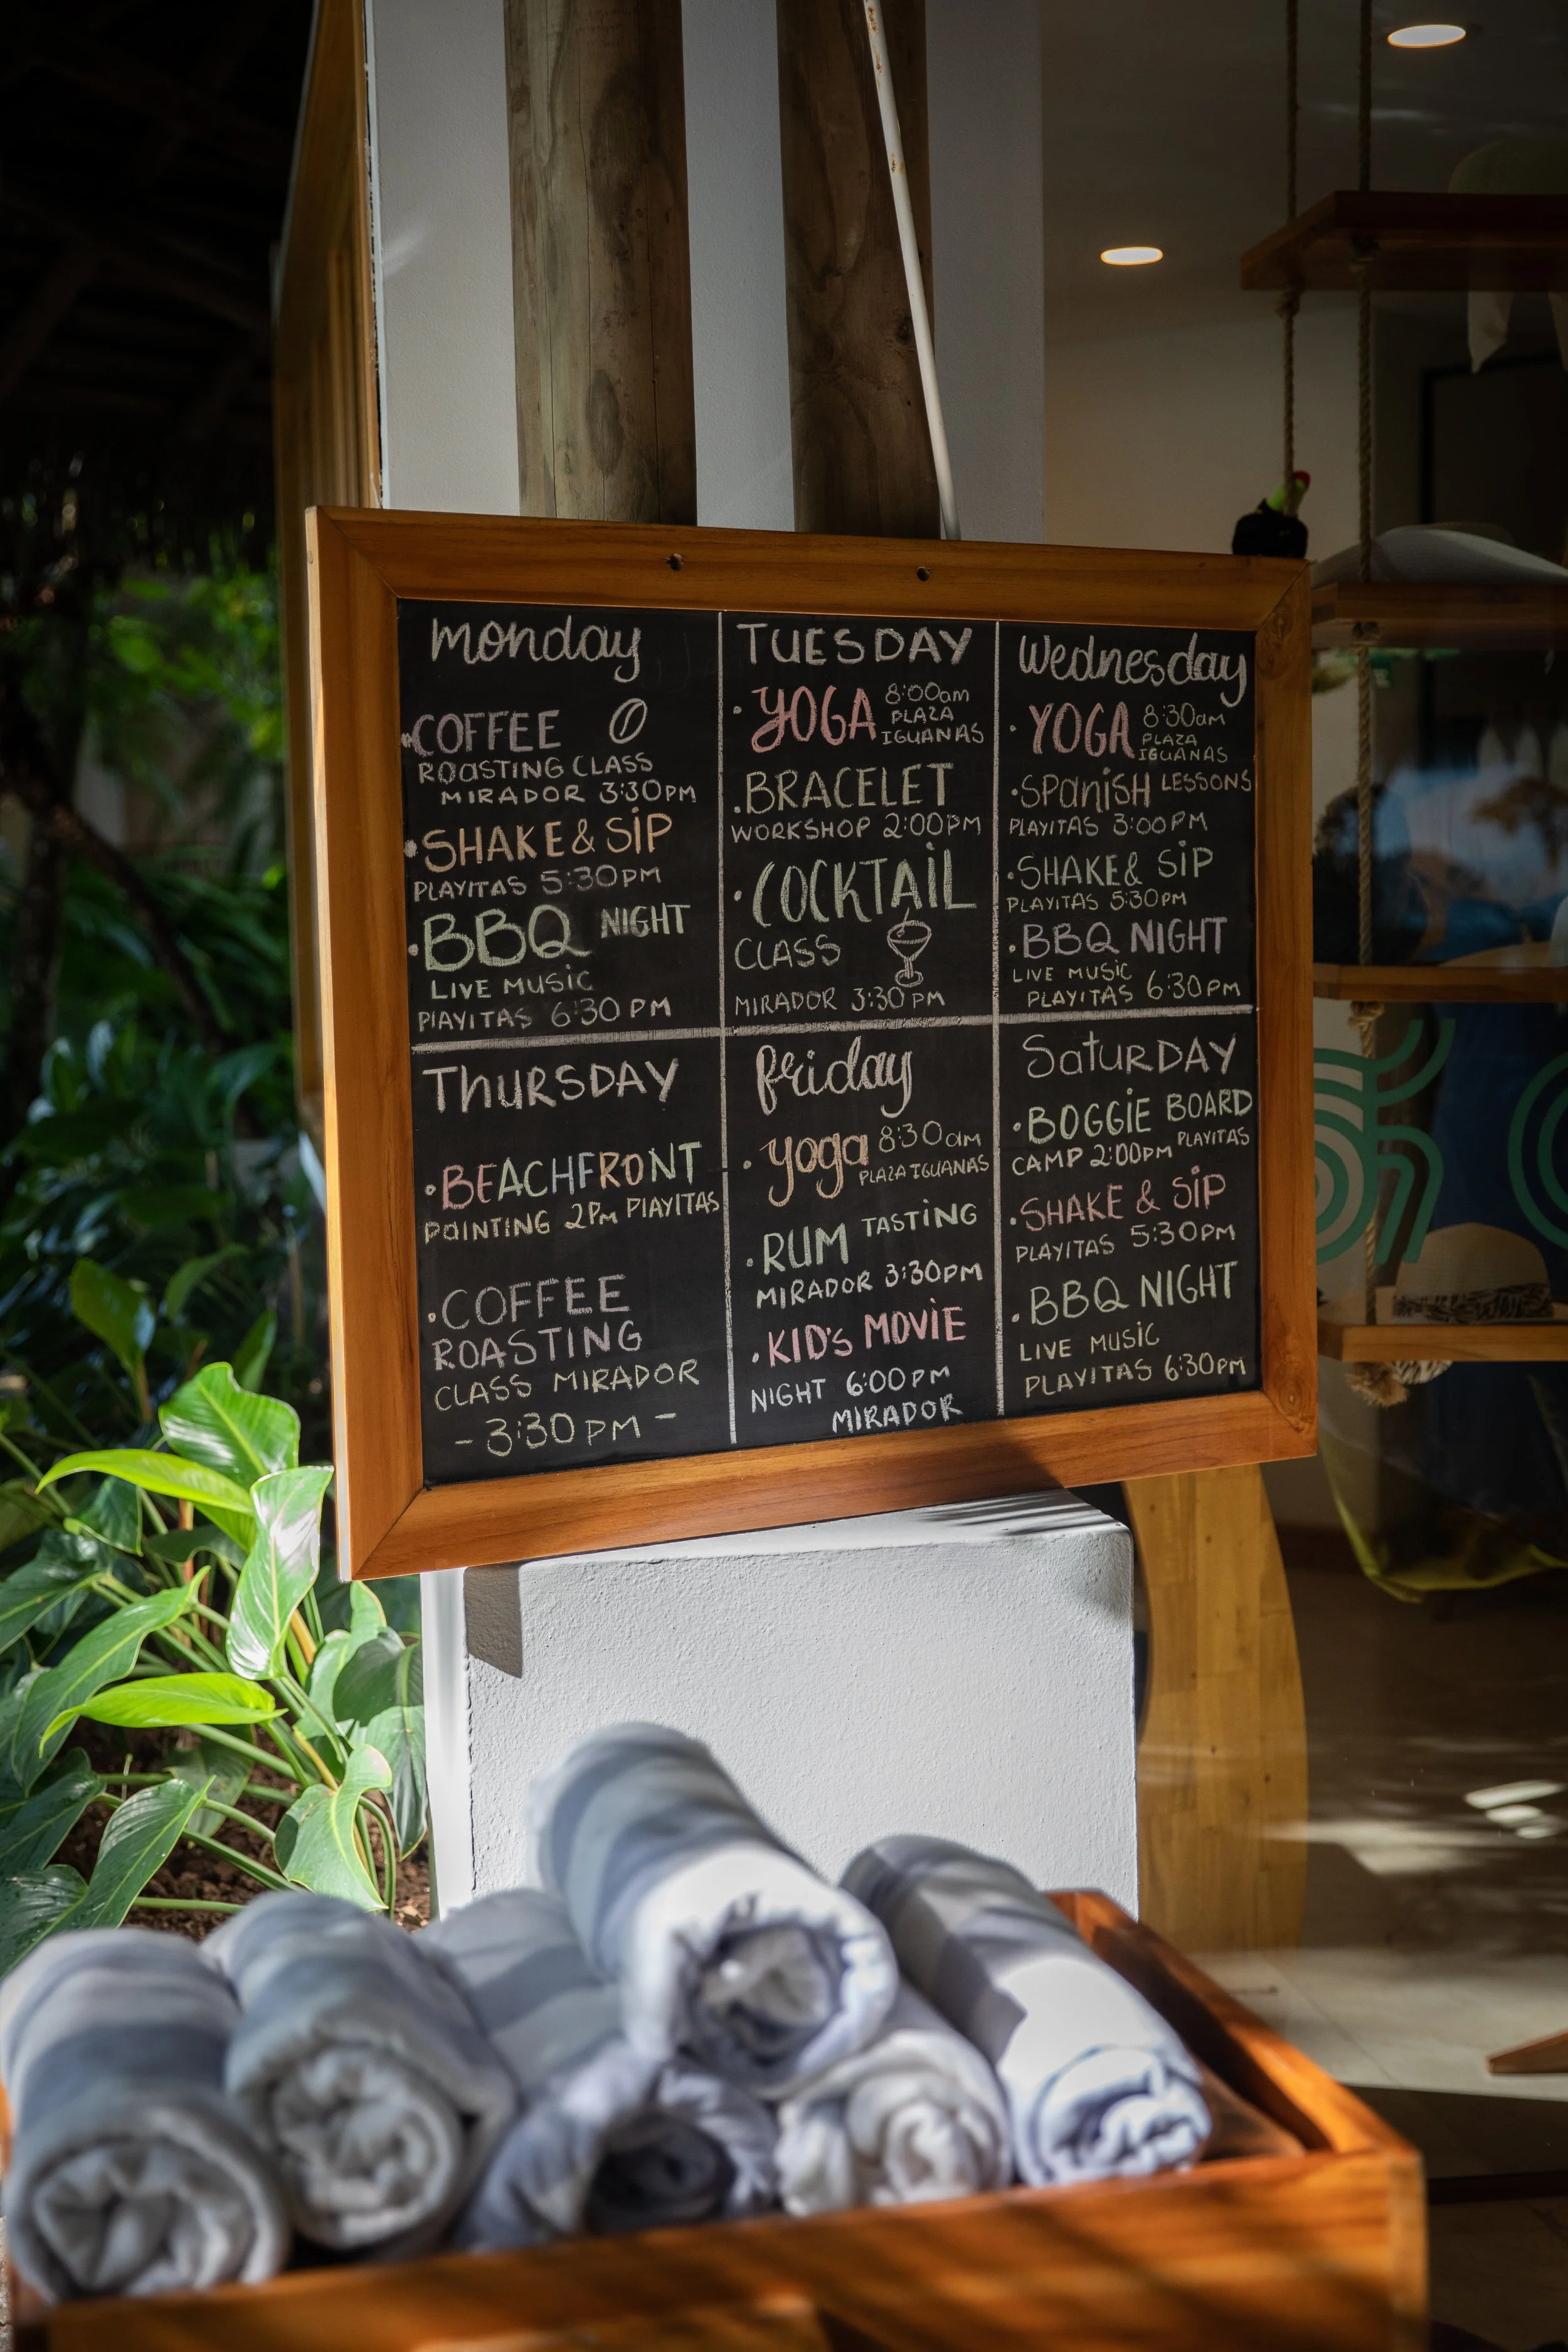 monday
COFFEE
ROASTING CLASS
MIRADOR 3:30PM
SHAKE & SIP
PLAYITAS 5:30PM
BBQ NIGHT
LIVE MUSIC
PLAYITAS 6:30PM
TUESDAY
YOGA 8:00am
PLAZA
IGUANAS
BRACELET
WORKSHOP 2:00PM
COCKTAIL
CLASS
MIRADOR 3:30PM
Wednesday
YOGA 8:30am
PLAZA
IGUANAS
SPANISH LESSONS
PLAYITAS 3:00PM
SHAKE & SIP
PLAYITAS 5:30PM
BBQ NIGHT
LIVE MUSIC
PLAYITAS 6:30PM
THURSDAY
BEACHFRONT
PAINTING 2PM PLAYITAS
COFFEE
ROASTING
CLASS MIRADOR
- 3:30PM -
friday
yoga 8:30am
PLAZA IGUANAS
RUM TASTING
MIRADOR 3:30PM
KID'S MOVIE
NIGHT 6:00PM
MIRADOR
SATURDAY
BOGGIE BOARD
CAMP 2:00PM PLAYITAS
SHAKE & SIP
PLAYITAS 5:30PM
BBQ NIGHT
LIVE MUSIC
PLAYITAS 6:30PM